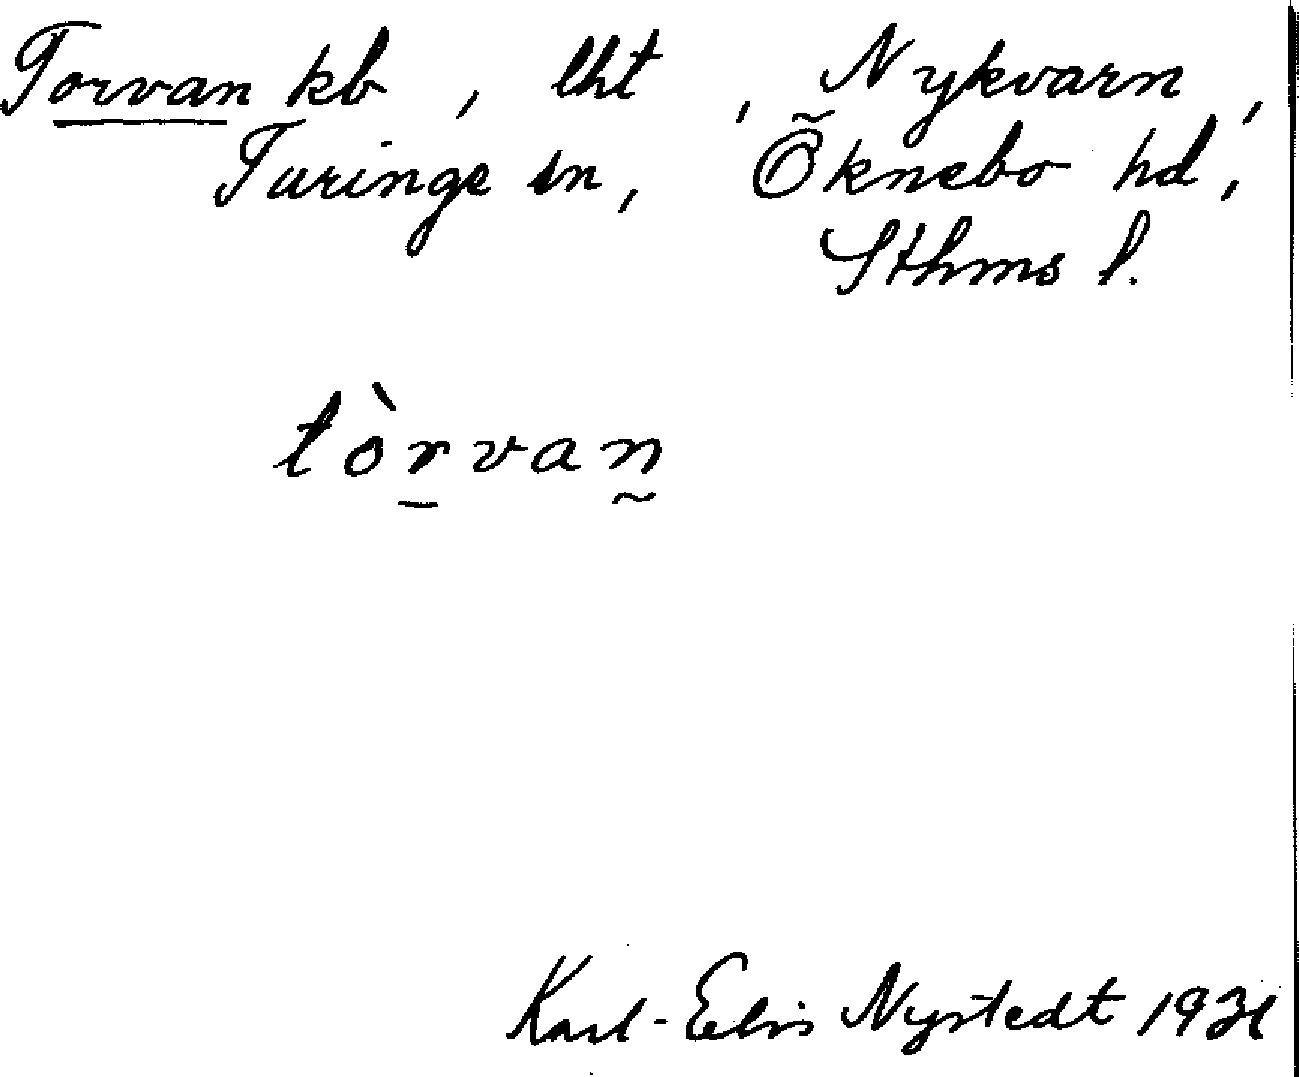 Torvan kb, lht, Nykvarn,
Turinge sn, Öknebo hd,
Sthms l.
tòrvan
Karl-Elis Nystedt 1931